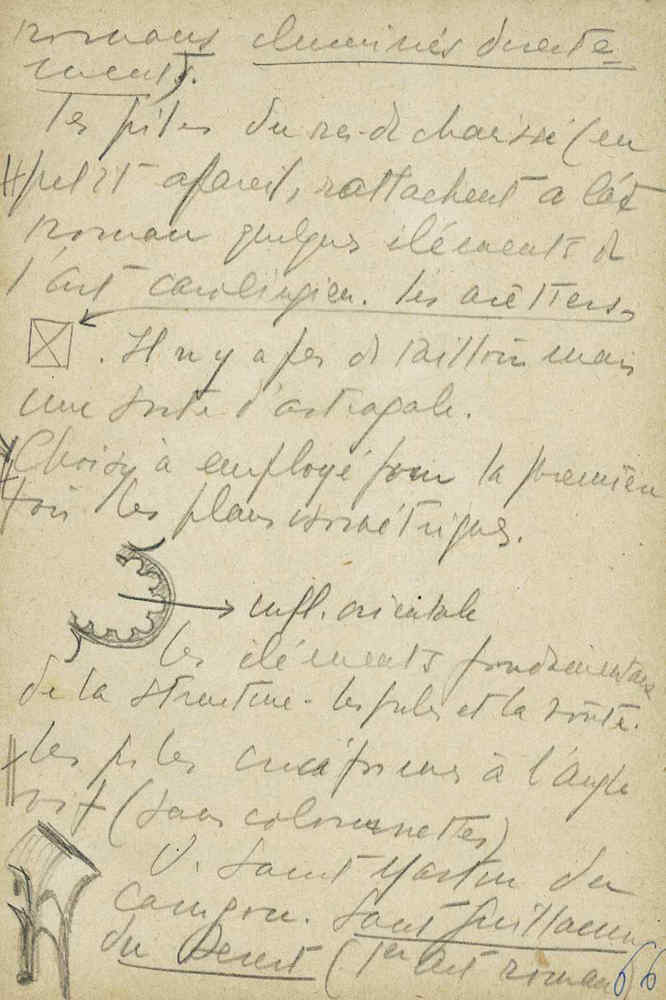 romans éluminés directe=
ment).
les piles du rez-de chaussée (en
petit apareil, rattachent a l'art
roman quelques éléments de
l'art carolingien. les arêtiers
. Il n y a pas de tailloir mais
une sorte d'astragale.
Choisy à employé pour la première
fois les plans isométriques.
infl. orientale
les éléments fondamentaux
de la structure - les piles et la voûte.
les piles cruciformes à l'angle
vif (sans colonnettes)
V. Saint Martin du
Canigou. Saint Guillaume
du Desert (1er art roman
66